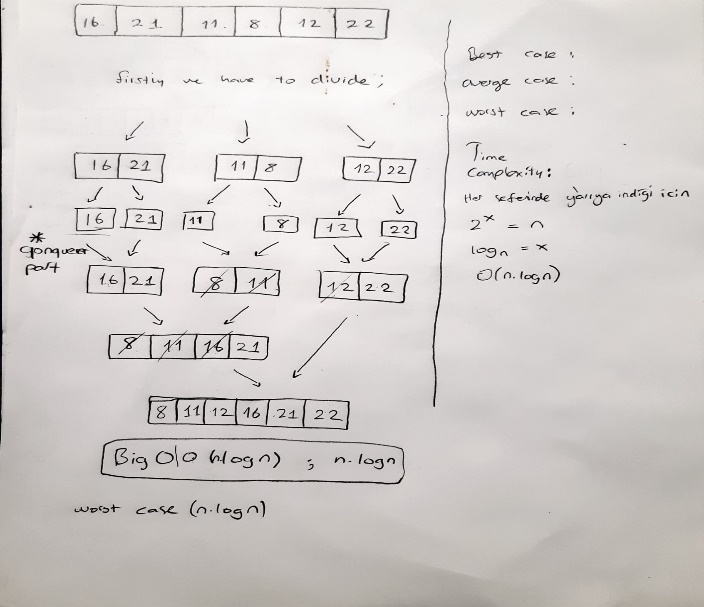 16 21 11 8 12 22
firstly we have to divide;
16 21 11 8 12 22
16 21 11 8 12 22
* Conquer
part
16 21 8 11 12 22
8 11 16 21
8 11 12 16 21 22
Big O|O (nlogn) ; n.logn
worst case (n.logn)
Best case :
averge case :
worst case :
Time
complexity:
Her seferinde yarıya indiği icin
2ˣ = n
logn = x
O(n.logn)